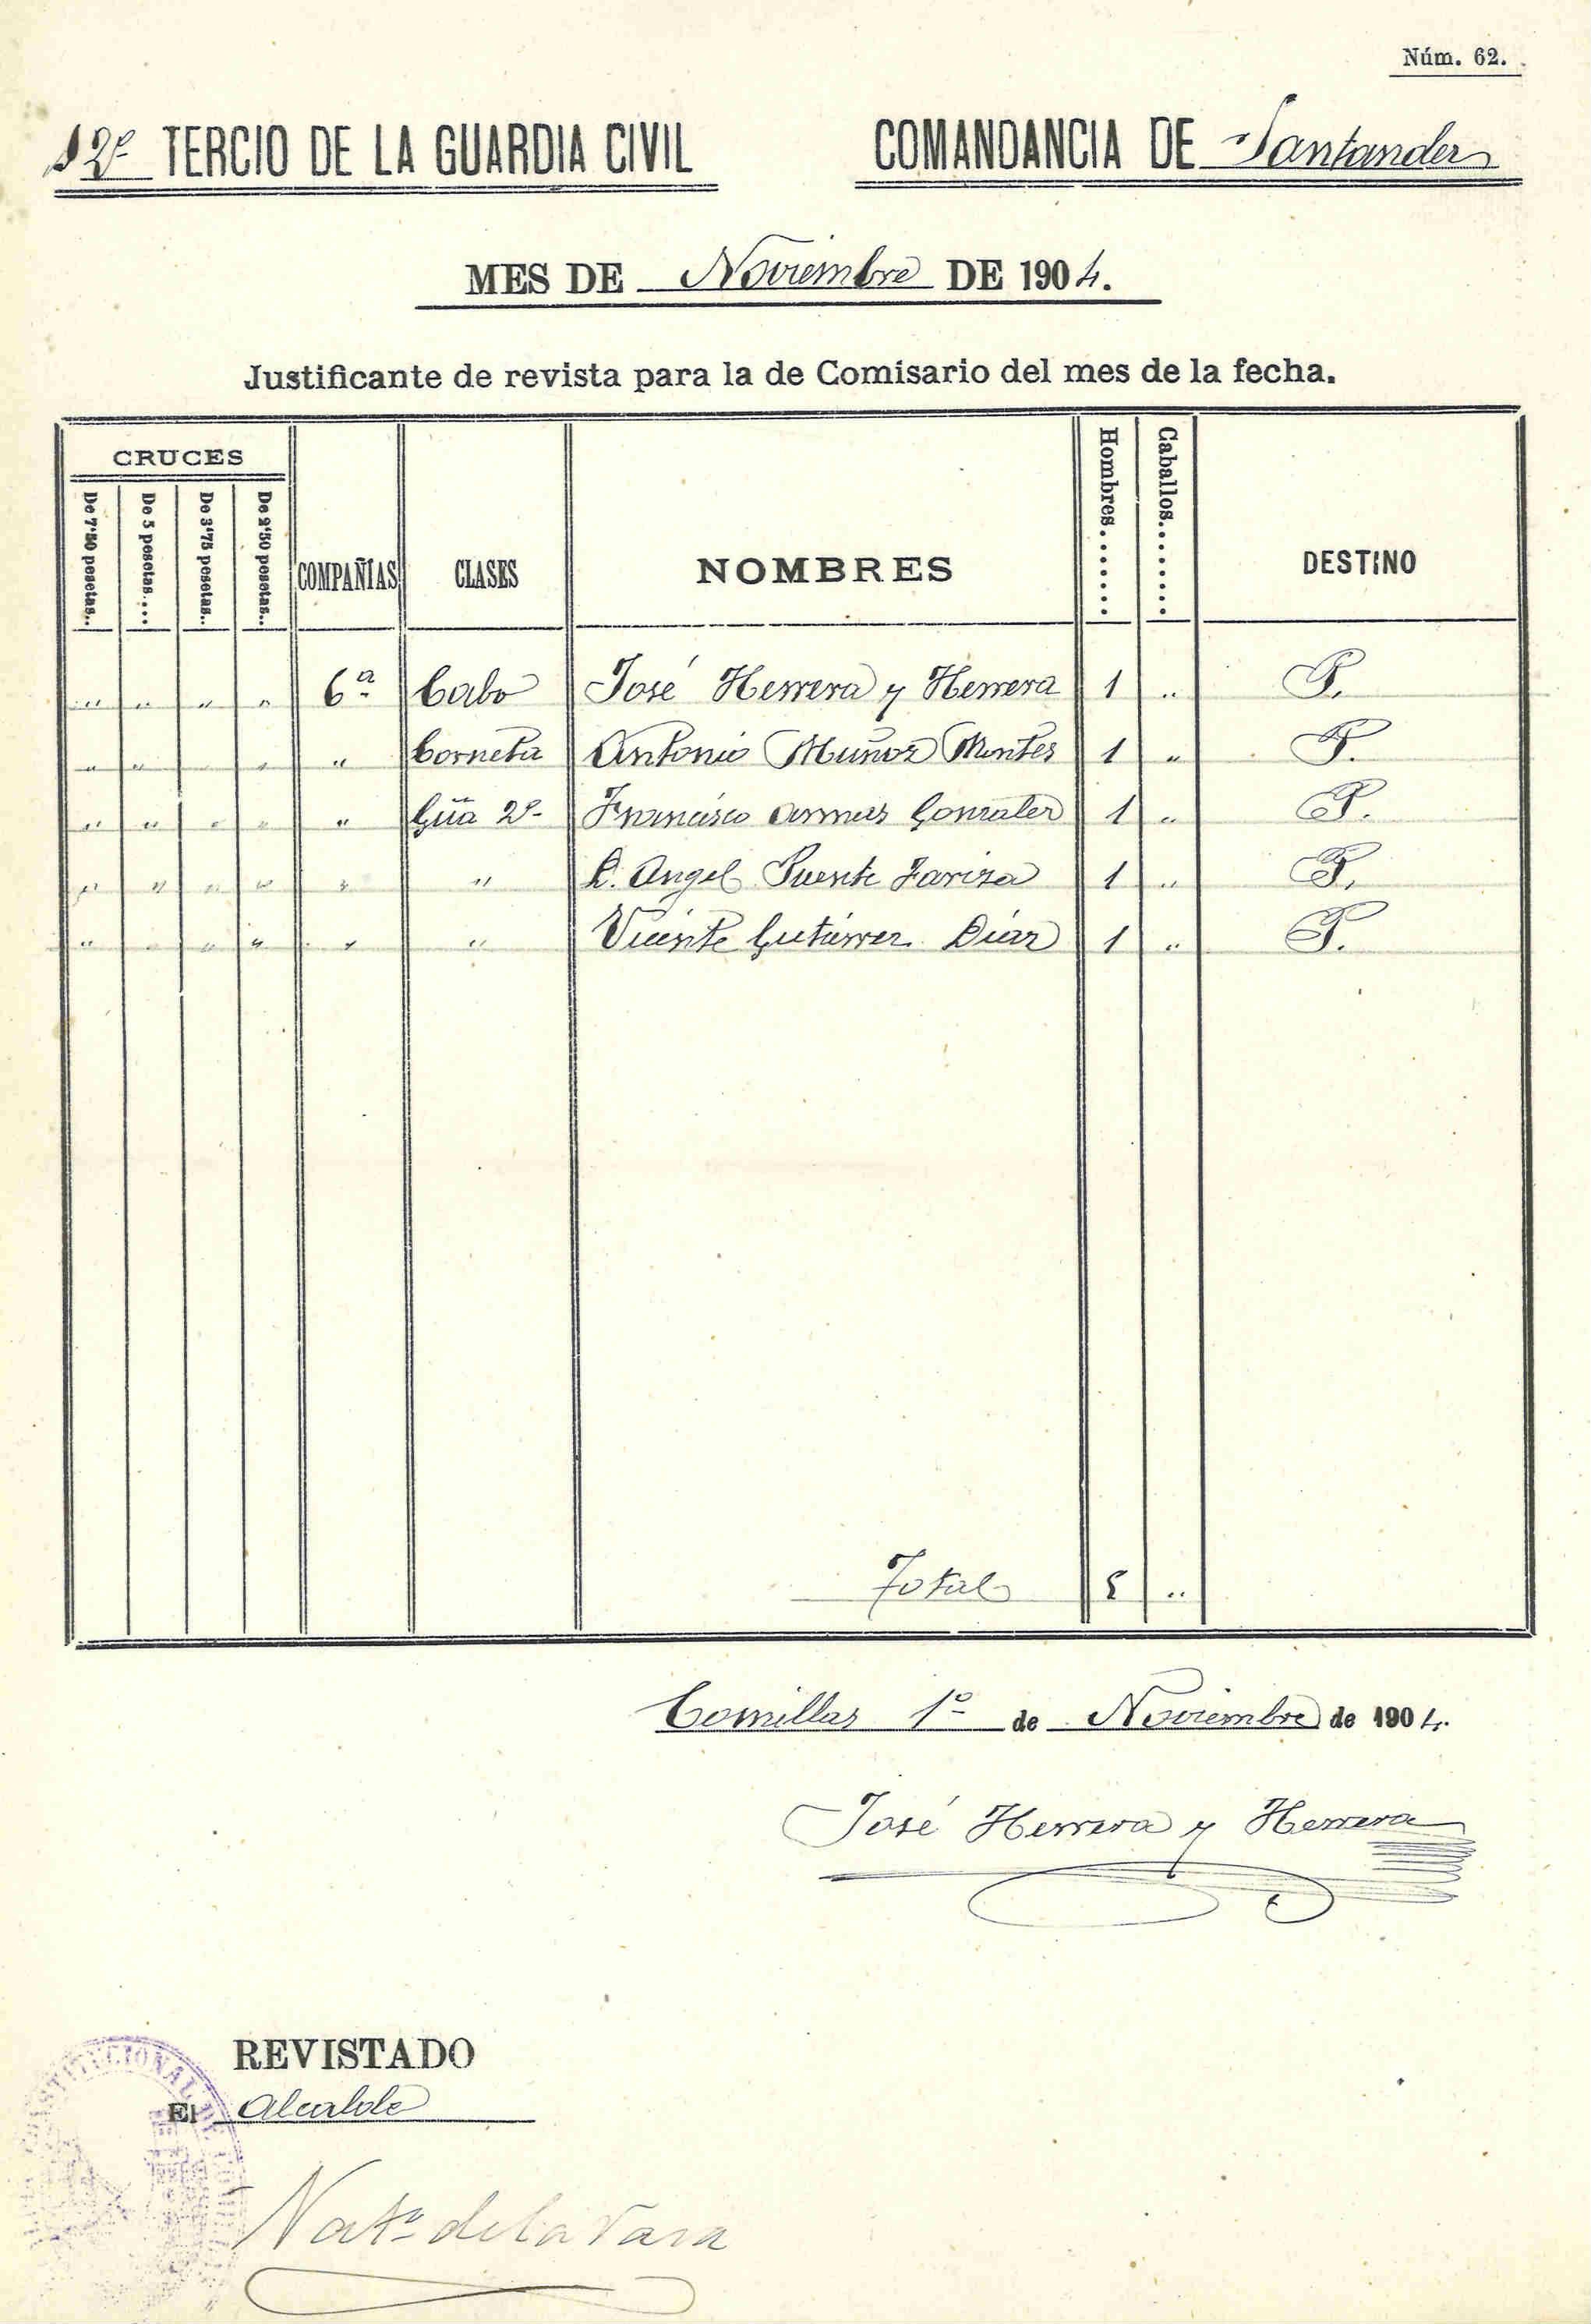 Núm. 62.
12º TERCIO DE LA GUARDIA CIVIL COMANDANCIA DE Santander
MES DE Noviembre DE 1904.
Justificante de revista para la de Comisario del mes de la fecha.
CRUCES
De 7'50 pesetas.. De 5 pesetas.... De 3'75 pesetas.. De 2'50 pesetas.. COMPAÑIAS CLASES NOMBRES Hombres....... Caballos........ DESTINO
" " " " 6ª Cabo José Herrera y Herrera 1 " P.
" " " " " Corneta Antonio Muñoz Montes 1 " P.
" " " " " Güa 2º Francisco Armas Gonzalez 1 " P.
" " " " " " D. Angel Puente 1 " P.
" " " " " " Vicente Gutierrez Diaz 1 " P.
Total 5 "
Comillas 1º de Noviembre de 1904.
José Herrera y Herrera
REVISTADO
El Alcalde
Natº de la Vara